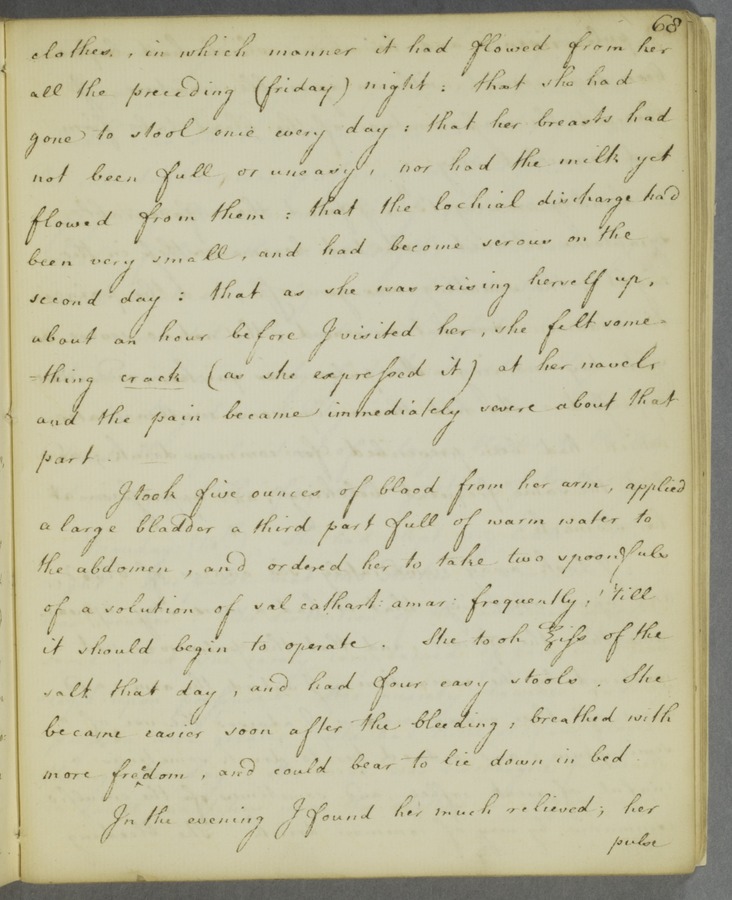 68
clothes, in which manner it had flowed from her
all the preceding (friday) night: that she had
gone to stool once every day: that her breasts had
not been full, or uneasy, nor had the milk yet
flowed from them: that the lochial discharge had
been very small, and had become serous on the
second day: that as she was raising herself up,
about an hour before I visited her, she felt some-
-thing crack (as she expressed it) at her navel,
and the pain became immediately severe about that
part.
I took five ounces of blood from her arm, applied
a large bladder a third part full of warm water to
the abdomen, and ordered her to take two spoonfuls
of a solution of sal cathart: amar: frequently, 'till
it should begin to operate. She took ℥iſs of the
salt that day, and had four easy stools. She
became easier soon after the bleeding, breathed with
more freedom, and could bear to lie down in bed
In the evening I found her much relieved; her
pulse